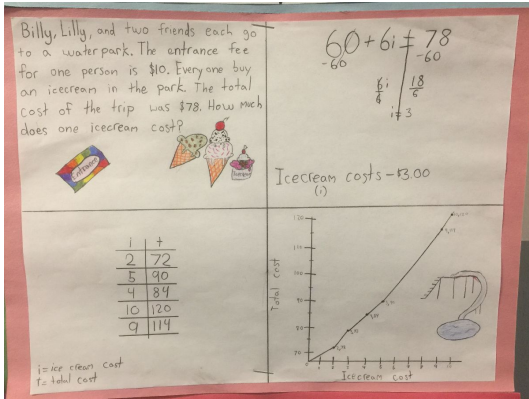 Billy, Lilly, and two friends each go
to a waterpark. The entrance fee
for one person is $10. Everyone buy
an icecream in the park. The total
cost of the trip was $78. How much
does one icecream cost?
60 + 6i = 78
-60 -60
6i 18
6 6
i = 3
Icecream costs - $3.00
(i)
i t
2 72
5 90
4 84
10 120
9 114
i = ice cream cost
t = total cost
Total Cost
120
110
100
90
80
70
Icecream cost